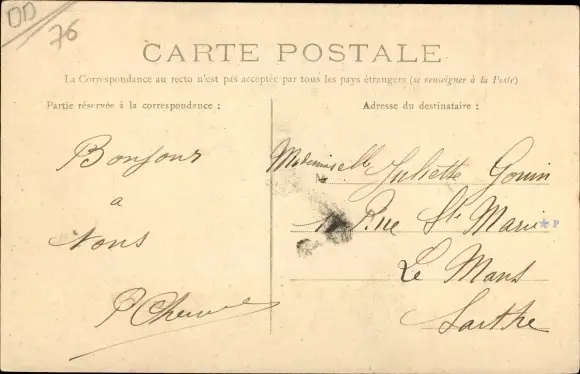 DD
76
CARTE POSTALE
La Correspondance au recto n'est pas acceptée par tous les pays étrangers (se renseigner à la Poste)
Partie réservée à la correspondance :
Bonjour
a
Vous
Adresse du destinataire :
Mademoiselle Juliette Gouin
Rue Ste Marie
Le Mans
Sarthe
★ P